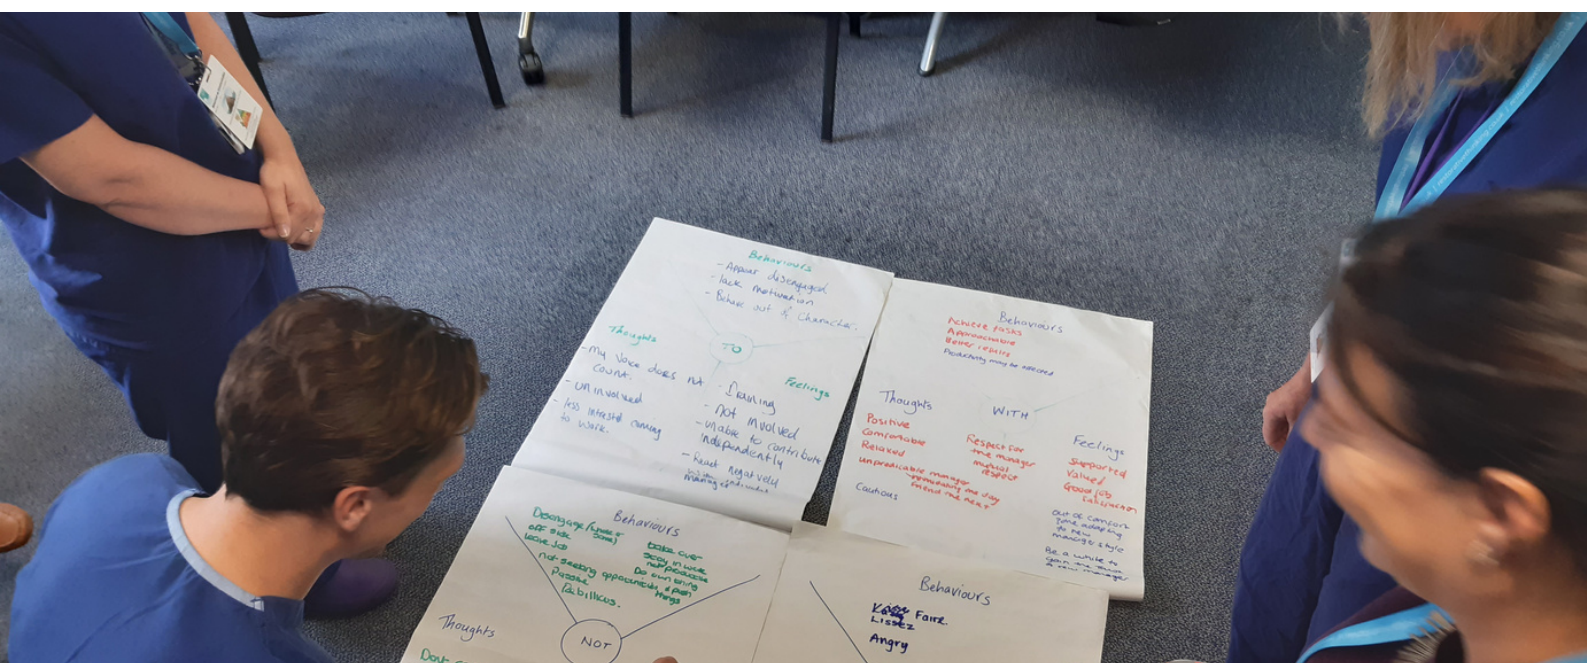 Behaviours
- Appear disengaged
- lack motivation
- Behave out of character.
Thoughts
TO
- My voice does not
count.
- uninvolved
- less intrested coming
to work.
Feelings
- Draining
- Not involved
- unable to contribute
independently
- React negatively
manager
Behaviours
Achieve tasks
Approachable
Better results
Productivity may be affected
Thoughts
WITH
Positive
Comfortable
Relaxed
unpredicable manager
one day
friend the next
Cautious
Respect for
the manager
mutual
respect
Feelings
Supported
Valued
Good job
satisfaction
out of comfort
zone adapting
to new
manager style
Be a while to
gain the
new manager
Behaviours
Disengage
off sick
leave job
not seeking
Passive
take over
stay in work
not productive
Do own thing
things
Thoughts
NOT
Behaviours
Faire
Lissez
Angry